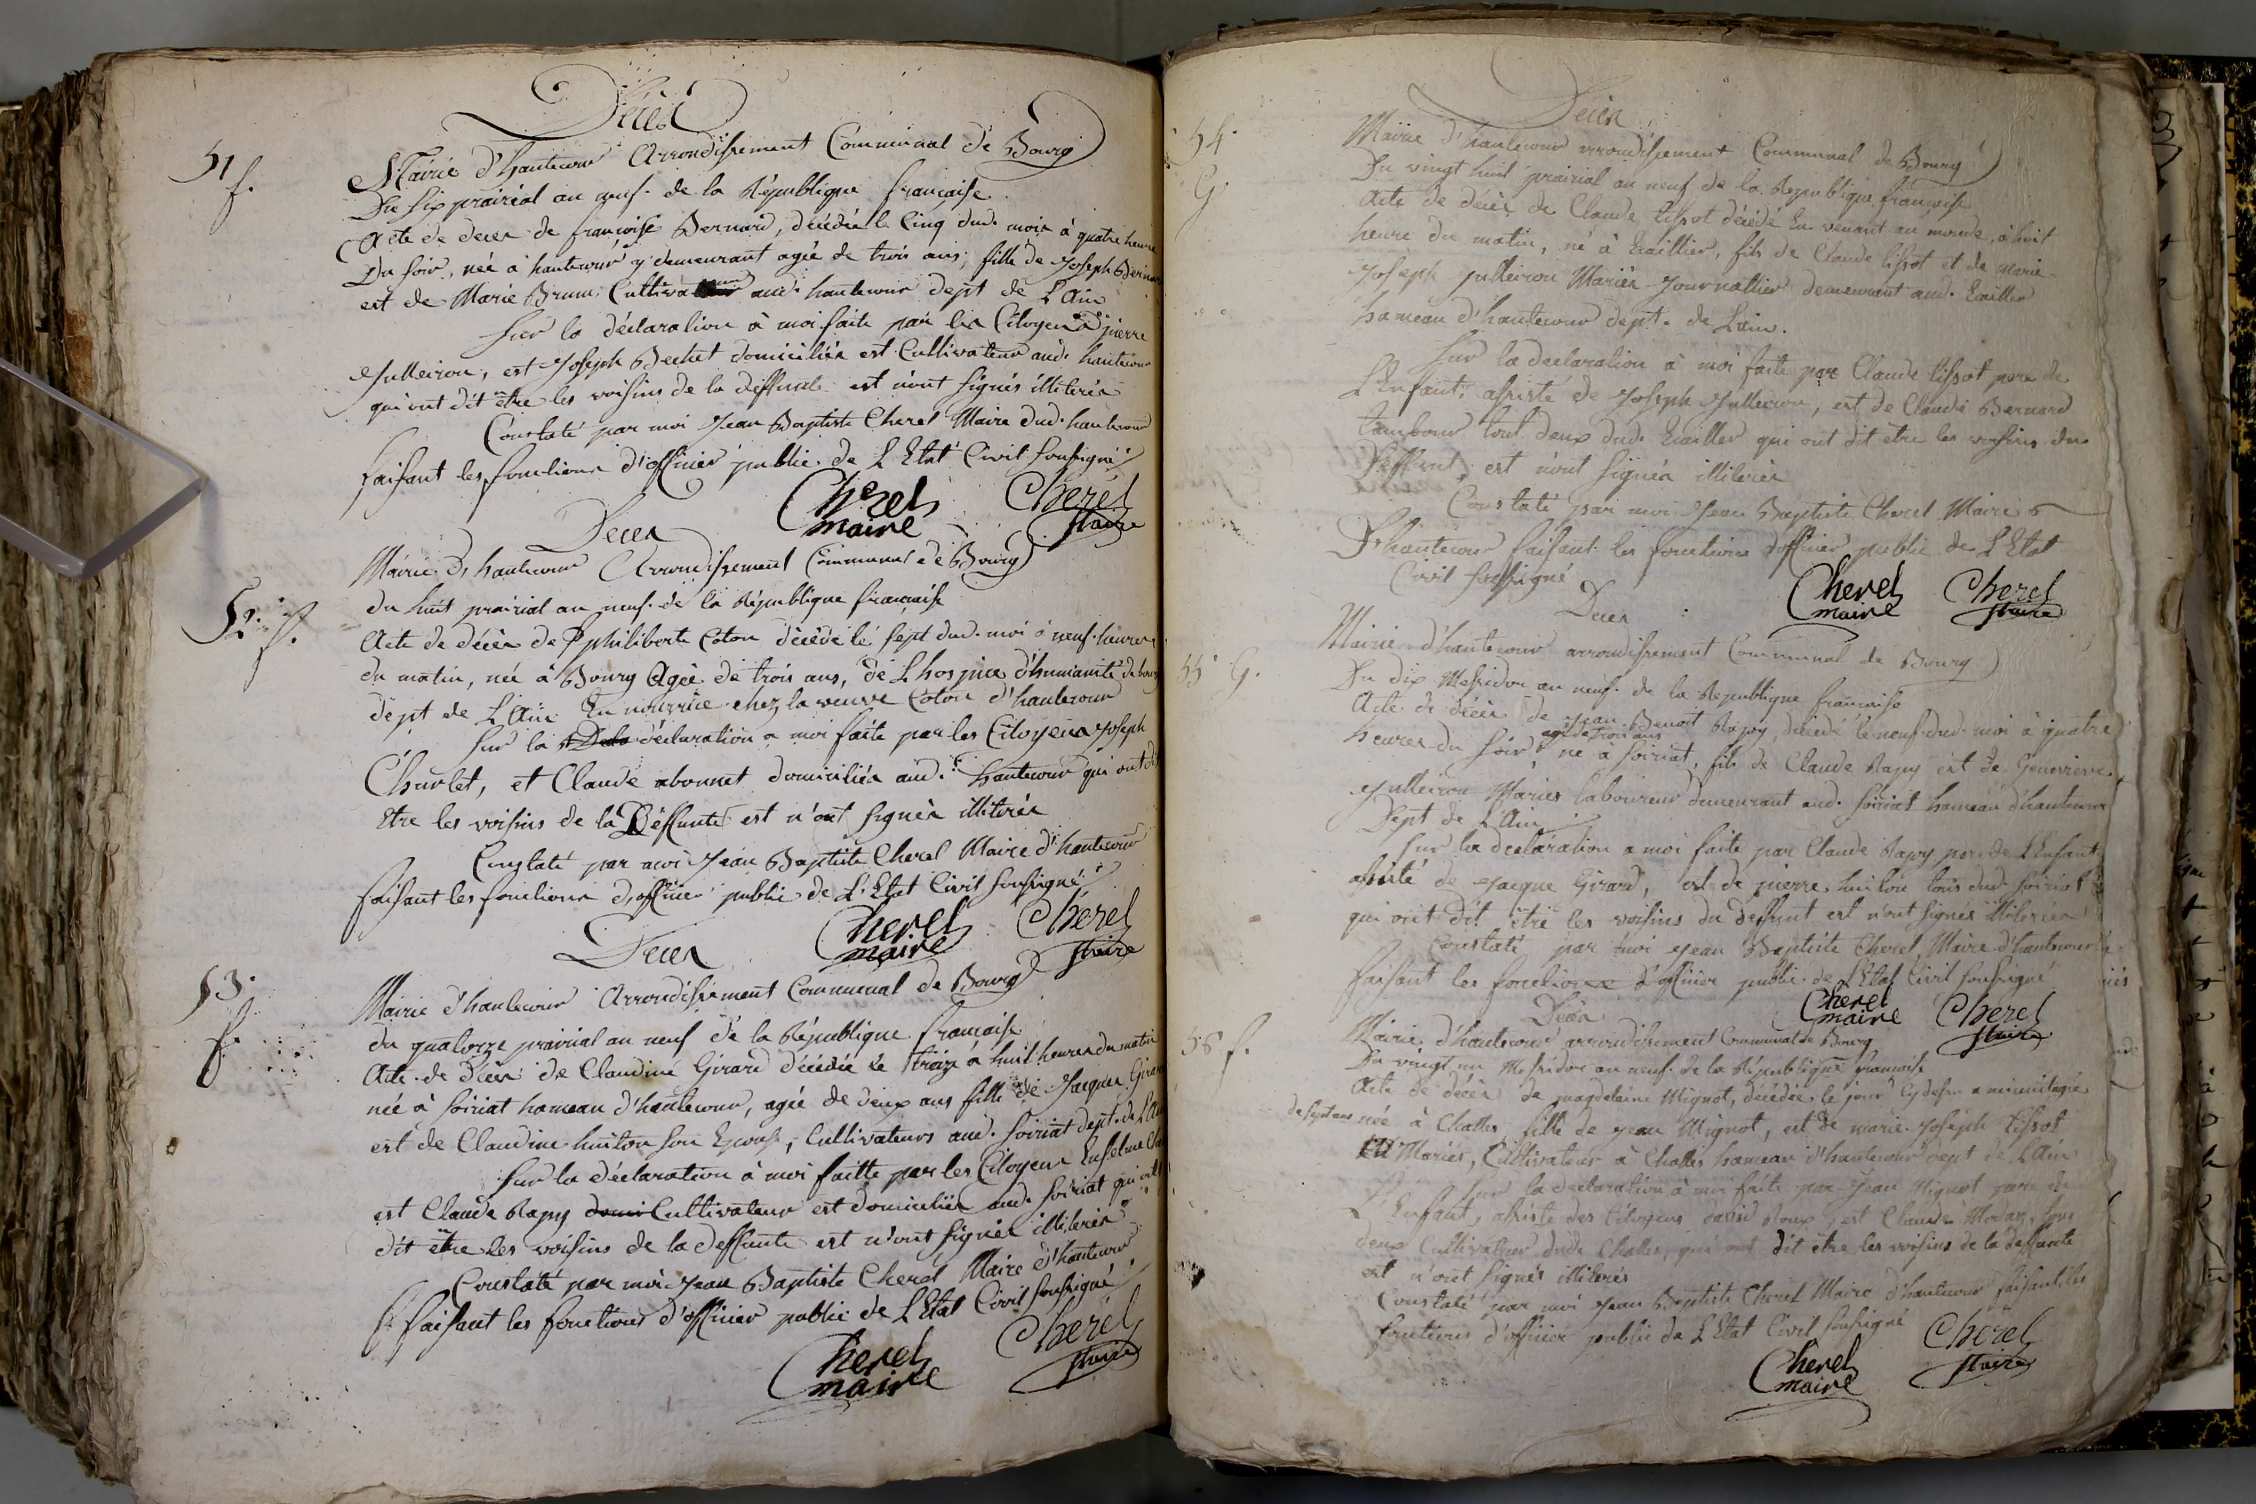 Décès
51
f.
Mairie d'hautecour Arrondissement Communal de Bourg
Du six prairial an neuf de la République francaise
Acte de deces de francoise Bernard, décédée le Cinq dud. mois à quatre heure
Du soir, née a hautecour y demeurant agée de trois ans, fille de Joseph Bernard
est de Marie Brun, Cultivateur aud. hautecour dept de L'Ain
sur la déclaration à moi faite par les Citoyens pierre
Julleiron, est Joseph Bechet domiciliés est Cultivateur aud. hautecour
qui ont dit être les voisins de la deffunte est n'ont signés illiterés
Constaté par moi Jean Baptiste Cherel Maire dud. hautecour
faisant les fonctions d'officier public de L'Etat Civil soussigné
Cherel maire
Cherel Maire
Deces
52. f.
Mairie d'hautecour Arrondissement Communal de Bourg
du huit prairial an neuf de la République francaise
Acte de décès de philiberte Coton décédé le sept dud. moi à neuf heures
du matin, née à Bourg Agée de trois ans, de L'hospice d'humanité de bourg
dept de L'Ain En nourrice chez la veuve Coton d'hautecour
sur la déclaration a moi faite par les Citoyens Joseph
Churlet, et Claude abonnet domiciliés aud. hautecour qui ont dit
Etre les voisins de la Deffunte est n'ont signés illiterés
Constaté par moi Jean Baptiste Cherel Maire d'hautecour
faisant les fonctions d'officier public de L'Etat Civil soussigné
Cherel maire
Cherel Maire
Deces
53.
f.
Mairie d'hautecour Arrondissement Communal de Bourg
du quatorze prairial an neuf de la République francaise
Acte de décès de Claudine Girard décédée le treize à huit heures du matin
née à soiriat hameau d'hautecour, agée de deux ans fille de Jacques Girard
est de Claudine huiton son Epouse, Cultivateurs aud. soiriat dept. de L'Ain
sur la déclaration à moi faitte par les Citoyens Enselme
est Claude Rapy Cultivateur est domiciliés aud. soiriat qui ont
dit être les voisins de la deffunte est n'ont signés illiterés
Constaté par moi Jean Baptiste Cherel Maire d'hautecour
faisant les fonctions d'officier public de L'Etat Civil soussigné
Cherel maire
Cherel Maire
Deces
54.
G.
Mairie d'hautecour arrondissement Communal de Bourg
Du vingt huit prairial an neuf de la République francaise
Acte de décès de Claude tissot décédé En venant au monde, à huit
heure du matin, né à Evaillier, fils de Claude tissot et de marie
Joseph Julleiron Mariés Journallier demeurant aud. Evaillier
hameau d'hautecour dept. de Lain.
sur la declaration à moi faite par Claude tissot pere de
L'Enfant, assisté de Joseph Julleiron, est de Claude Bernard
tambour tout deux dud. Evaillier qui ont dit etre les voisins du
Deffunt, est n'ont signés illiterés
Constaté par moi Jean Baptiste Cherel Maire
D'hautecour faisant les fonctions d'officier public de L'Etat
Civil soussigné
Cherel maire
Cherel Maire
Deces
55. G.
Mairie d'hautecour arrondissement Communal de Bourg
Du dix Messidor an neuf de la République francaise
Acte de décès de Jean Benoit Rapy, décédé le neuf dud. moi à quatre
agé de trois ans
heures du soir, né à soiriat, fils de Claude Rapy est de Genevieve
Julleiron Mariés laboureur demeurant aud. soiriat hameau d'hautecour
Dept de L'Ain
sur la declaration a moi faite par Claude Rapy pere de L'Enfant
assisté de Jacque Girard, est de pierre huiton tous dud. soiriat
qui ont dit être les voisins du deffunt est n'ont signés illiterés
Constaté par moi Jean Baptiste Cherel, Maire d'hautecour
faisant les fonctions d'officier public de L'Etat Civil soussigné
Cherel maire
Cherel Maire
Décès
56 f.
Mairie d'hautecour arrondissement Communal de Bourg
Du vingt un Messidor an neuf de la République francaise
Acte de décès de magdelaine Mignot, décédée le jour Cydessu a minuit agée
de sept ans née à Challes fille de Jean Mignot, est de marie Joseph tissot
Mariés, Cultivateur à Challes hameau d'hautecour dept de L'Ain
sur la declaration à moi faite par Jean Mignot pere de
L'Enfant, assisté des Citoyens david Roux, est Claude Moday tous
deux Cultivateur dud. Challes, qui ont dit être les voisins de la deffunte
est n'ont signés illiterés
Constaté par moi Jean Baptiste Cherel Maire d'hautecour faisant les
fonctions d'officier public de L'Etat Civil soussigné
Cherel maire
Cherel Maire